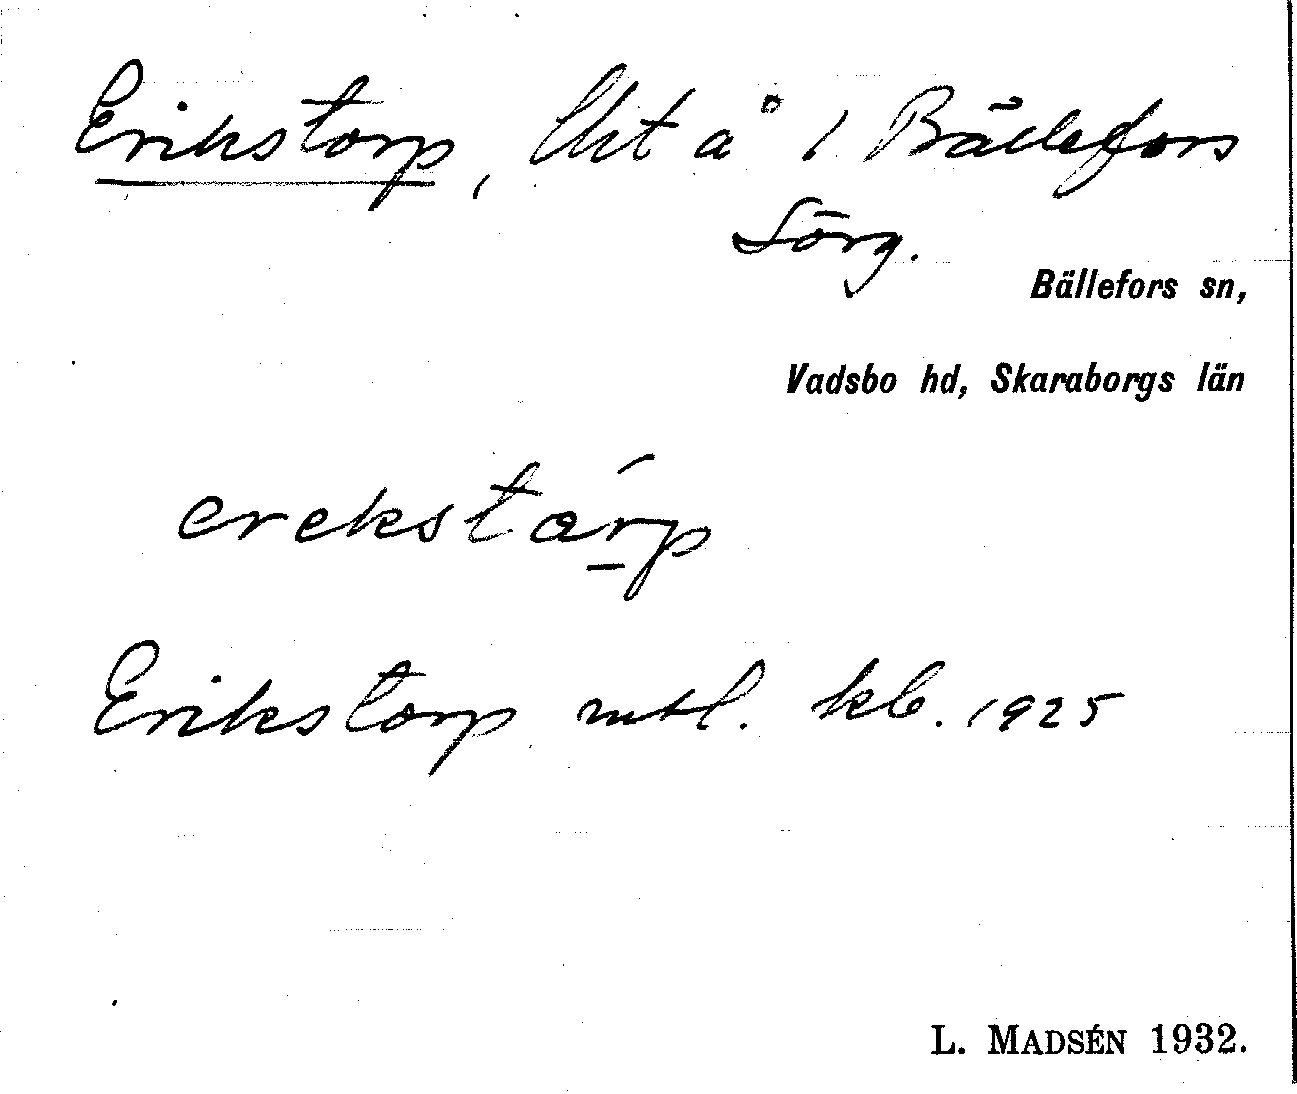 Erikstorp, lht å 1 Bällefors
Sörg.
Bällefors sn,
Vadsbo hd, Skaraborgs län
erekstárp
Erikstorp mtl. kb. 1925
L. MADSÉN 1932.